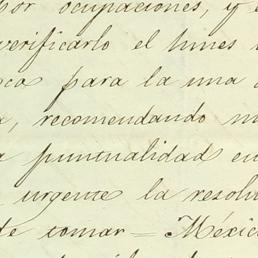 por ocupaciones, y
verificarlo el lunes
para la una
recomendando
puntualidad en
urgente la resolu
de tomar = México